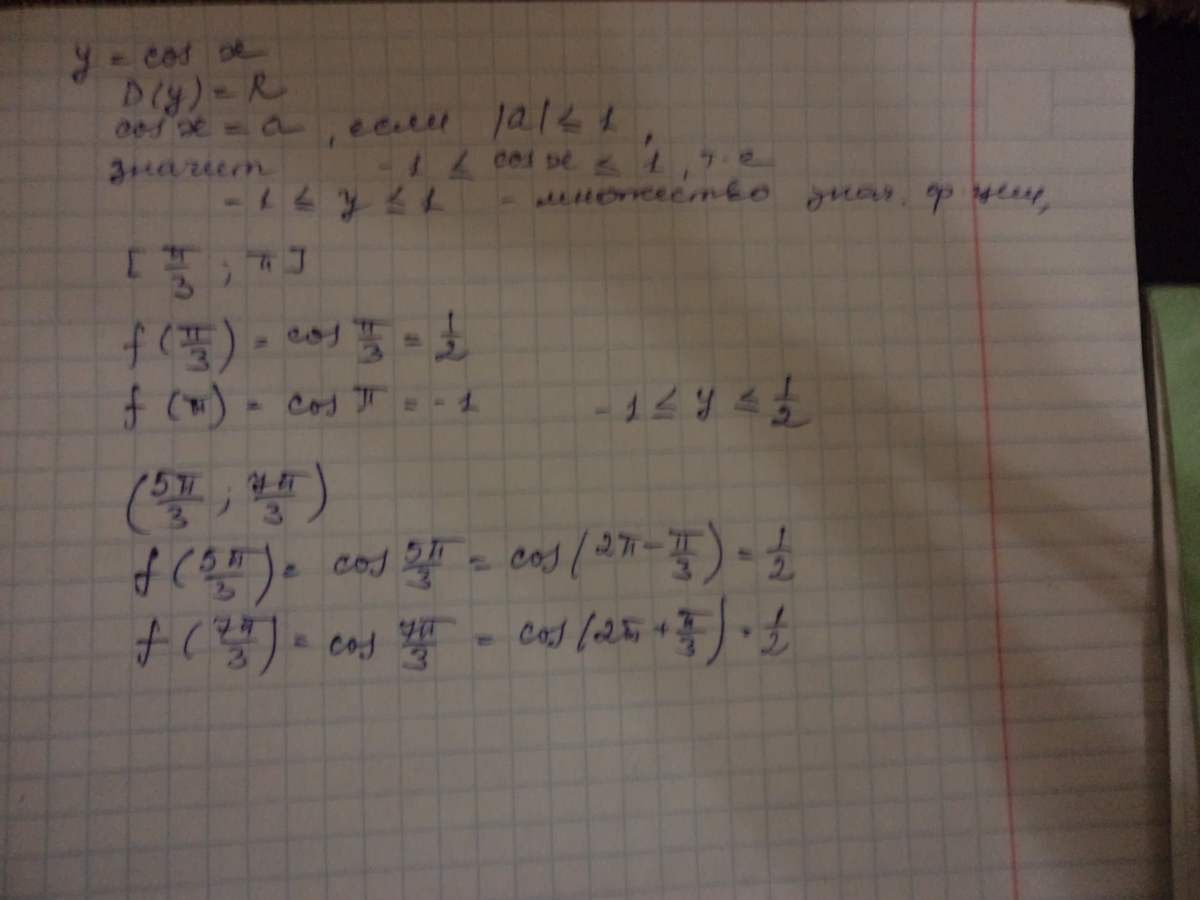 y = cos x
D(y) = R
cos x = a, если |a| ≤ 1,
значит -1 ≤ cos x ≤ 1, т.е
-1 ≤ y ≤ 1 - множество знач. ф-ции,
[π/3 ; π]
f(π/3) = cos π/3 = 1/2
f(π) = cos π = -1 -1 ≤ y ≤ 1/2
(5π/3 ; 7π/3)
f(5π/3) = cos 5π/3 = cos(2π - π/3) = 1/2
f(7π/3) = cos 7π/3 = cos(2π + π/3) = 1/2